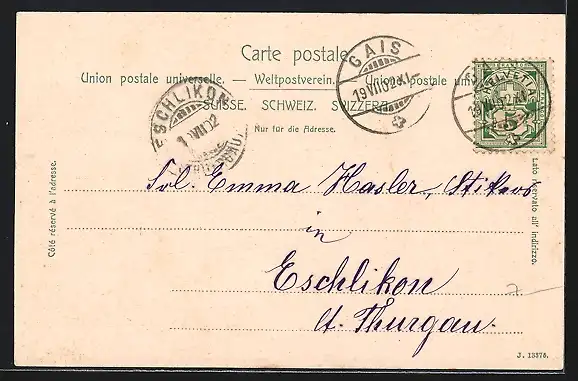 Carte postale
Union postale universelle. — Weltpostverein. — Unione postale univ
SUISSE. SCHWEIZ. SVIZZERA.
Nur für die Adresse.
GAIS
19 VII 02 XI
HELVETIA
5
ESCHLIKON
VII 02
(THURGAU)
Côté réservé à l'adresse.
Lato riservato all' indirizzo.
Emma Hasler,
in
Eschlikon
Ct. Thurgau.
J. 13376.